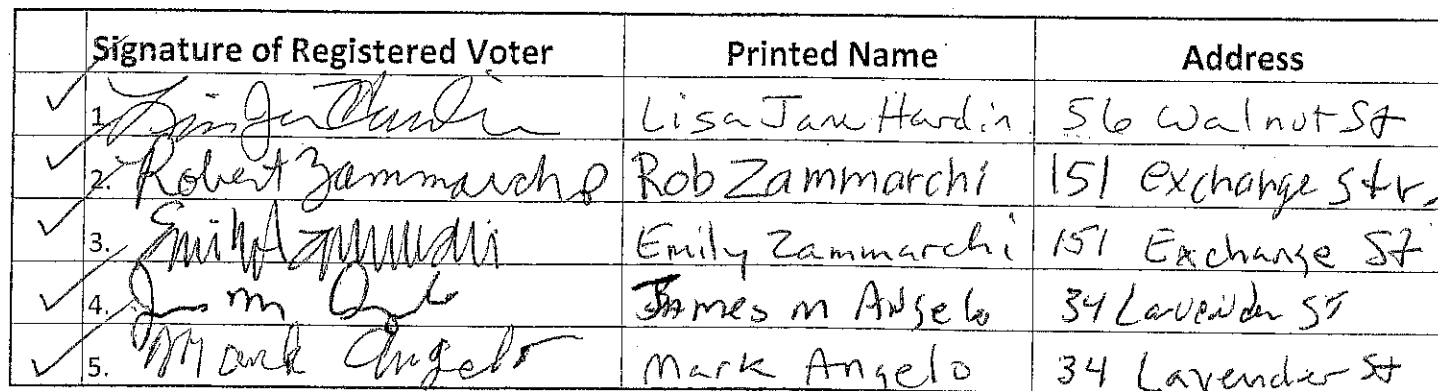 Signature of Registered Voter Printed Name Address
1. Lisa Jane Hardin 56 Walnut St
2. Robert Zammarchi Rob Zammarchi 151 exchange str.
3. Emily Zammarchi 151 Exchange St
4. James m Angelo 34 Lavender ST
5. Mark Angelo Mark Angelo 34 Lavender St